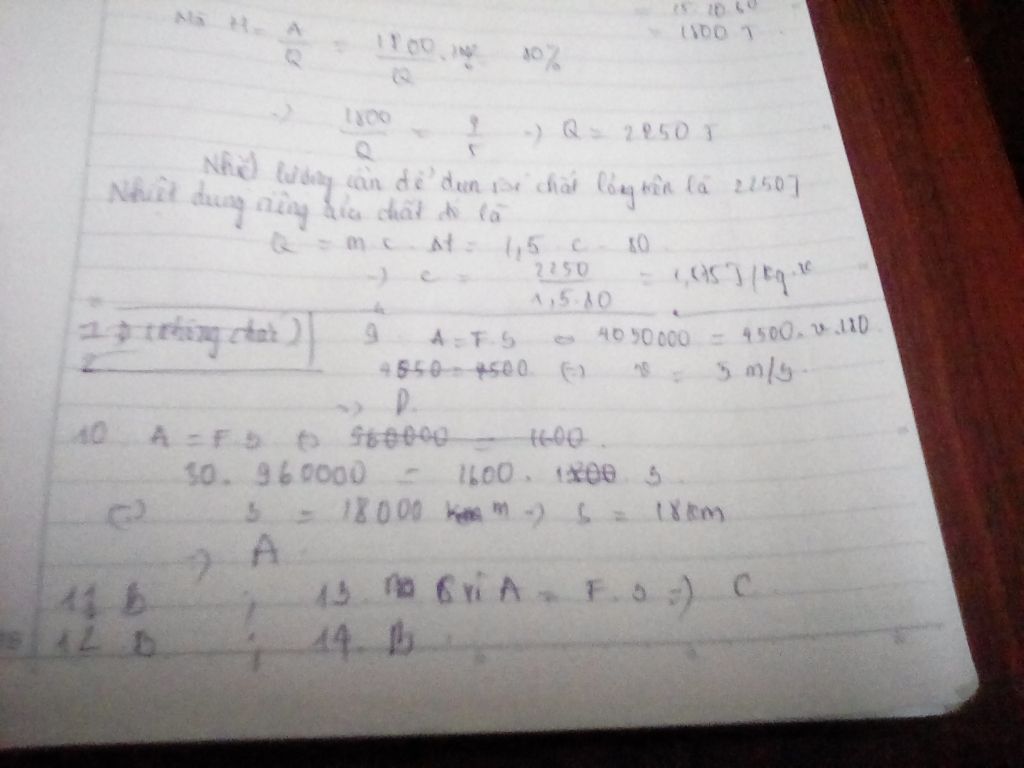 = 15.10.60
Mà H = A/Q = 1800/Q . 80%
= 1800 J
=> 1800/Q = 4/5 => Q = 2250 J
Nhiệt lượng cần để đun sôi chất lỏng trên là 2250J
Nhiệt dung riêng của chất đó là
Q = m c Δt = 1,5 c . 80
=> c = 2250/1,5.80 = J/kg.K
9 A = F.S <=> 4050000 = 4500. v. 180
<=> v = 5 m/s.
=> D.
10 A = F.S <=> 960000 = 1600.
30. 960000 = 1600. S
<=> S = 18000 m => S = 18km
=> A
11 B ; 13 vì A = F.S => C
12 D ; 14. B